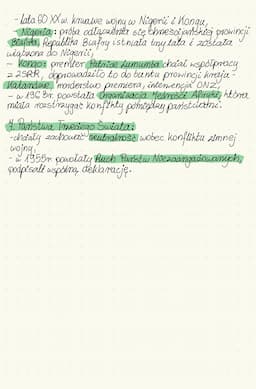 - lata 60 XX w. krwawe wojny w Nigerii i Kongu,
- Nigeria: próba odłączenia się chrześcijańskiej prowincji
Biafra, Republika Biafry istniała trzy lata i została
włączona do Nigerii,
- Kongo: premier Patrice Lumumba chciał współpracy
z ZSRR, doprowadziło to do buntu prowincji kraju-
Katandze, morderstwo premiera, interwencja ONZ,
- w 1963r. powstała Organizacja Jedności Afryki, która
miała rozstrzygać konflikty pomiędzy państwami.
7. Państwa Trzeciego Świata:
- chciały zachować neutralność wobec konfliktu zimnej
wojny,
- w 1955r powołały Ruch Państw Niezaangażowanych,
podpisali wspólną deklarację.